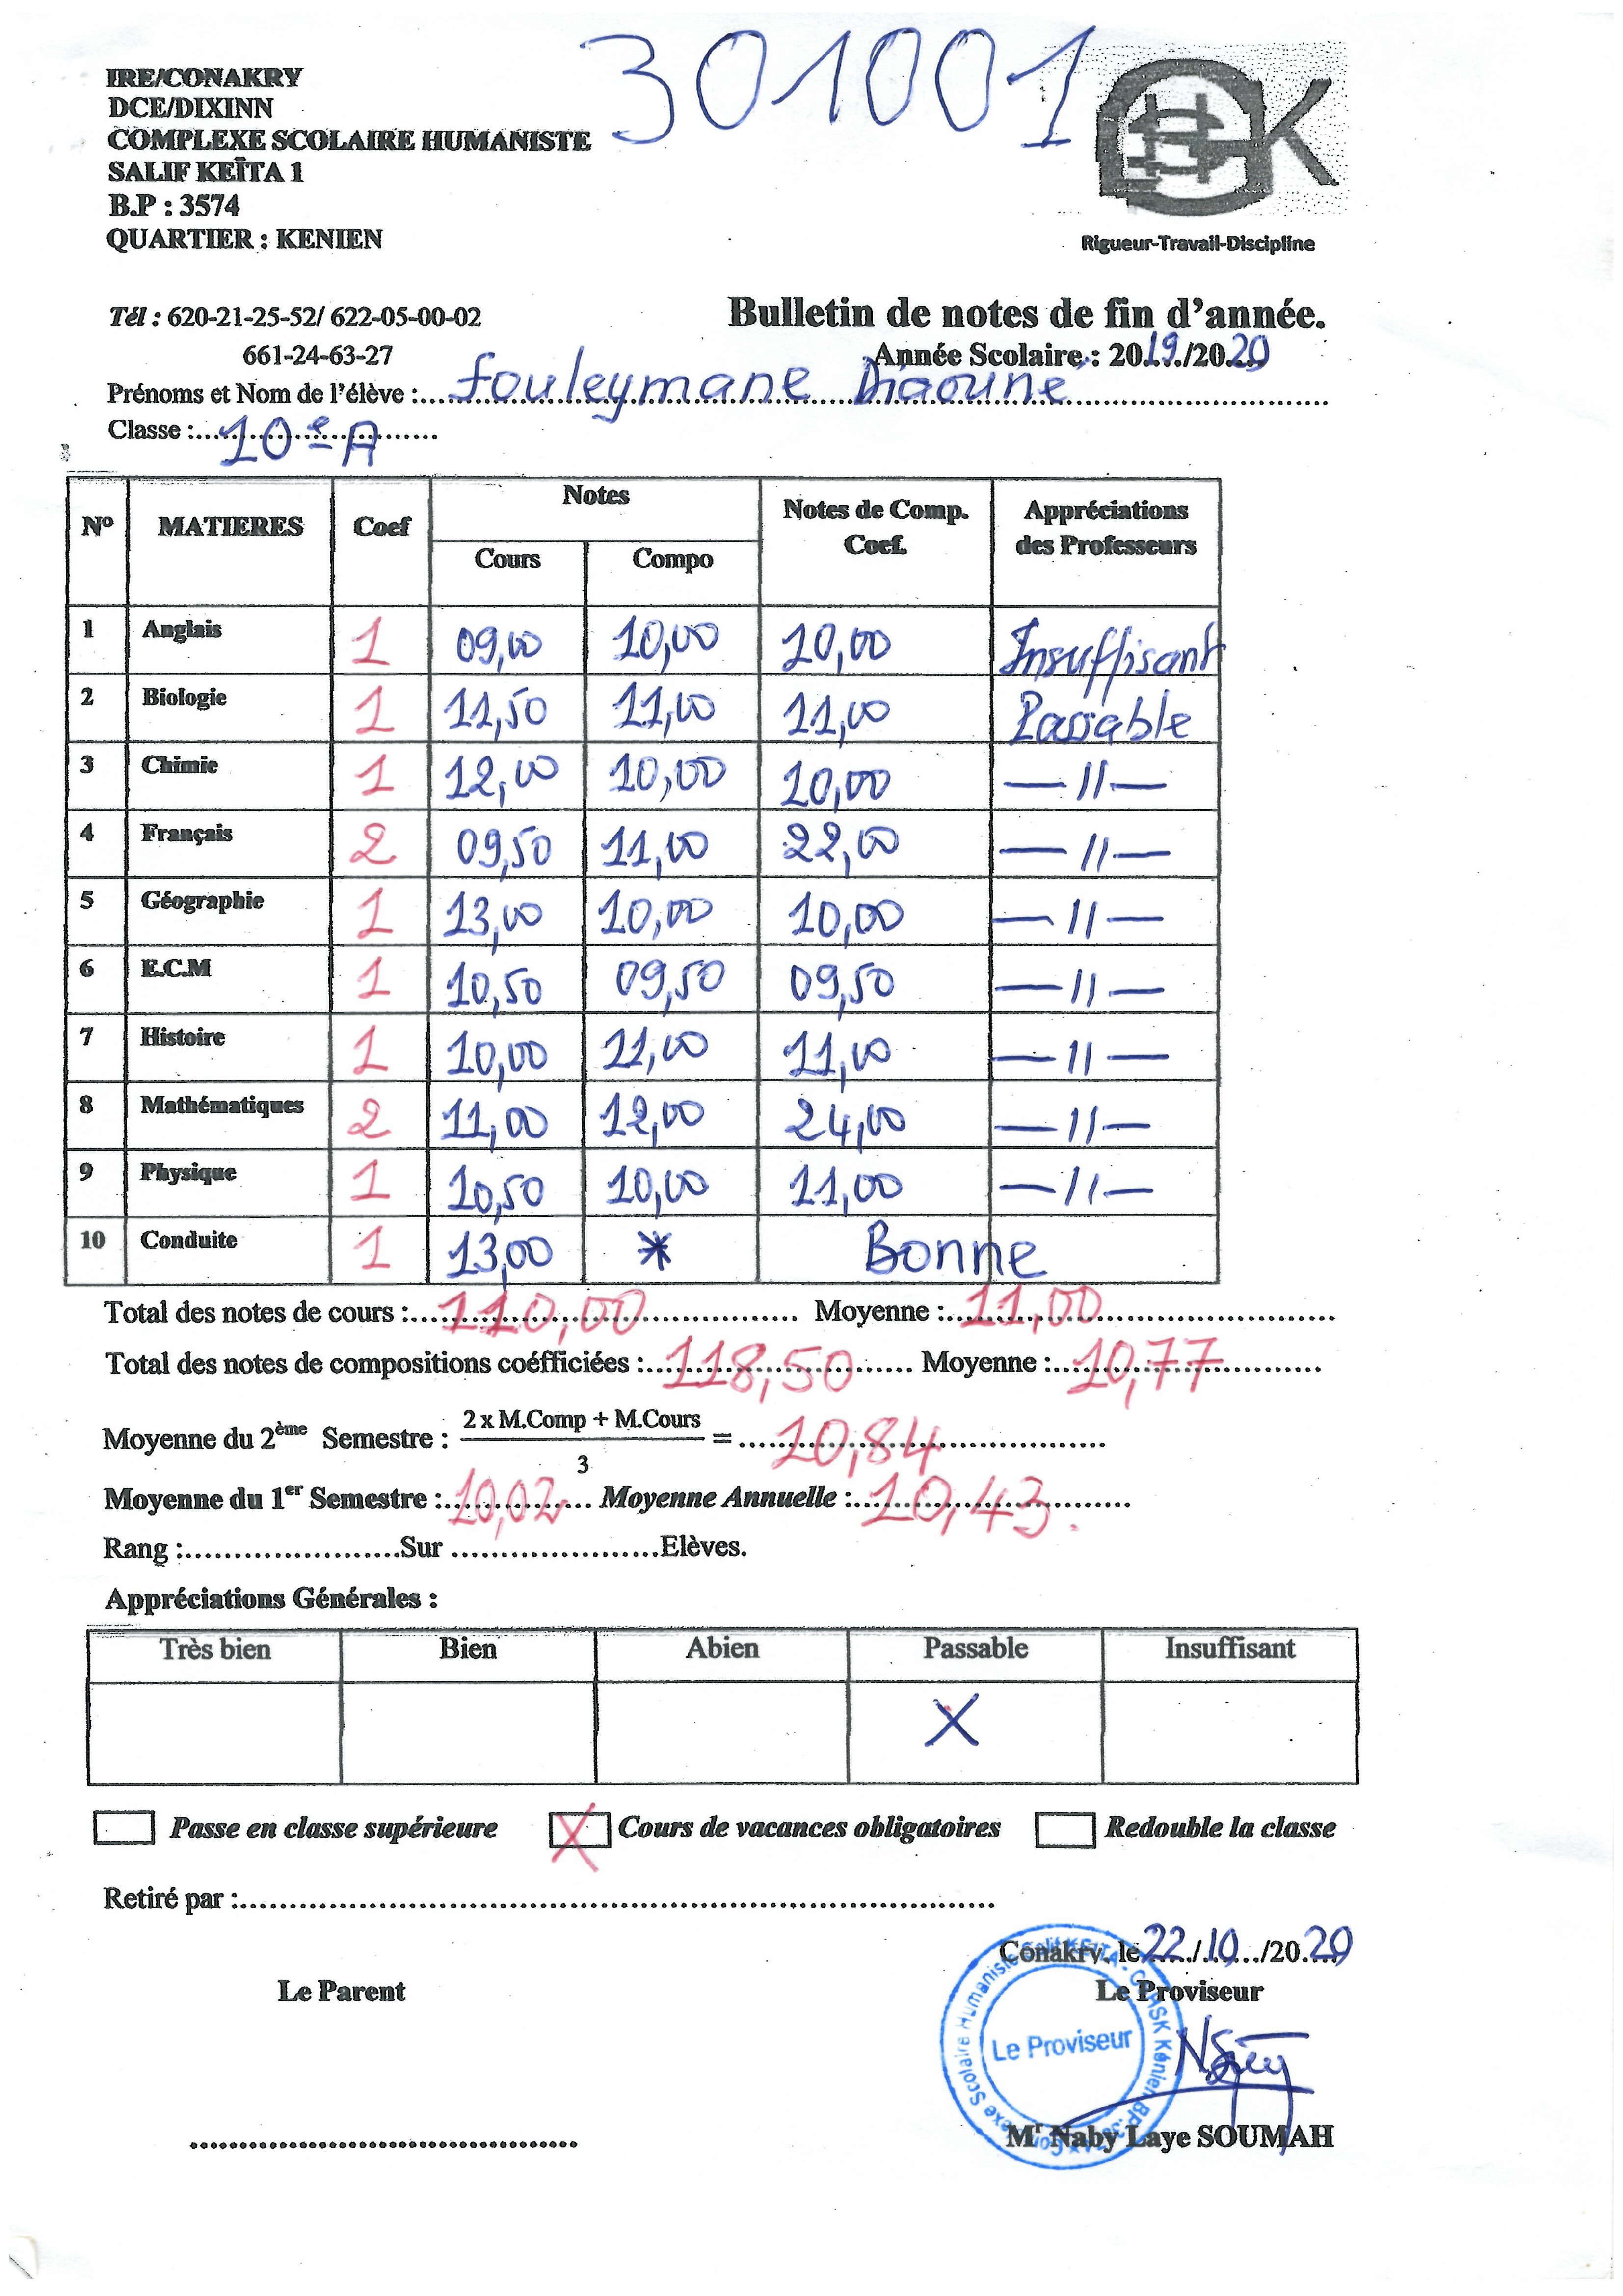 301001
IRE/CONAKRY
DCE/DIXINN
COMPLEXE SCOLAIRE HUMANISTE
SALIF KEÏTA 1
B.P : 3574
QUARTIER : KENIEN
Rigueur-Travail-Discipline
Tél : 620-21-25-52/ 622-05-00-02
661-24-63-27
Bulletin de notes de fin d'année.
Année Scolaire : 2019/2020
Prénoms et Nom de l'élève : Souleymane Diaouné
Classe : 10e A
N° MATIERES Coef Notes Notes de Comp. Coef. Appréciations des Professeurs
Cours Compo
1 Anglais 1 09,00 10,00 10,00 Insuffisant
2 Biologie 1 11,50 11,00 11,00 Passable
3 Chimie 1 12,00 10,00 10,00 — // —
4 Français 2 09,50 11,00 22,00 — // —
5 Géographie 1 13,00 10,00 10,00 — // —
6 E.C.M 1 10,50 09,50 09,50 — // —
7 Histoire 1 10,00 11,00 11,00 — // —
8 Mathématiques 2 11,00 12,00 24,00 — // —
9 Physique 1 10,50 10,00 11,00 — // —
10 Conduite 1 13,00 * Bonne
Total des notes de cours : 110,00 Moyenne : 11,00
Total des notes de compositions coéfficiées : 118,50 Moyenne : 10,77
Moyenne du 2ème Semestre : 2 x M.Comp + M.Cours / 3 = 10,84
Moyenne du 1er Semestre : 10,02 Moyenne Annuelle : 10,43.
Rang :......................Sur .....................Elèves.
Appréciations Générales :
Très bien Bien Abien Passable Insuffisant
X
Passe en classe supérieure X Cours de vacances obligatoires Redouble la classe
Retiré par :
Conakry, le 22/10/2020
Le Parent Le Proviseur
Le Proviseur
Mr Naby Laye SOUMAH